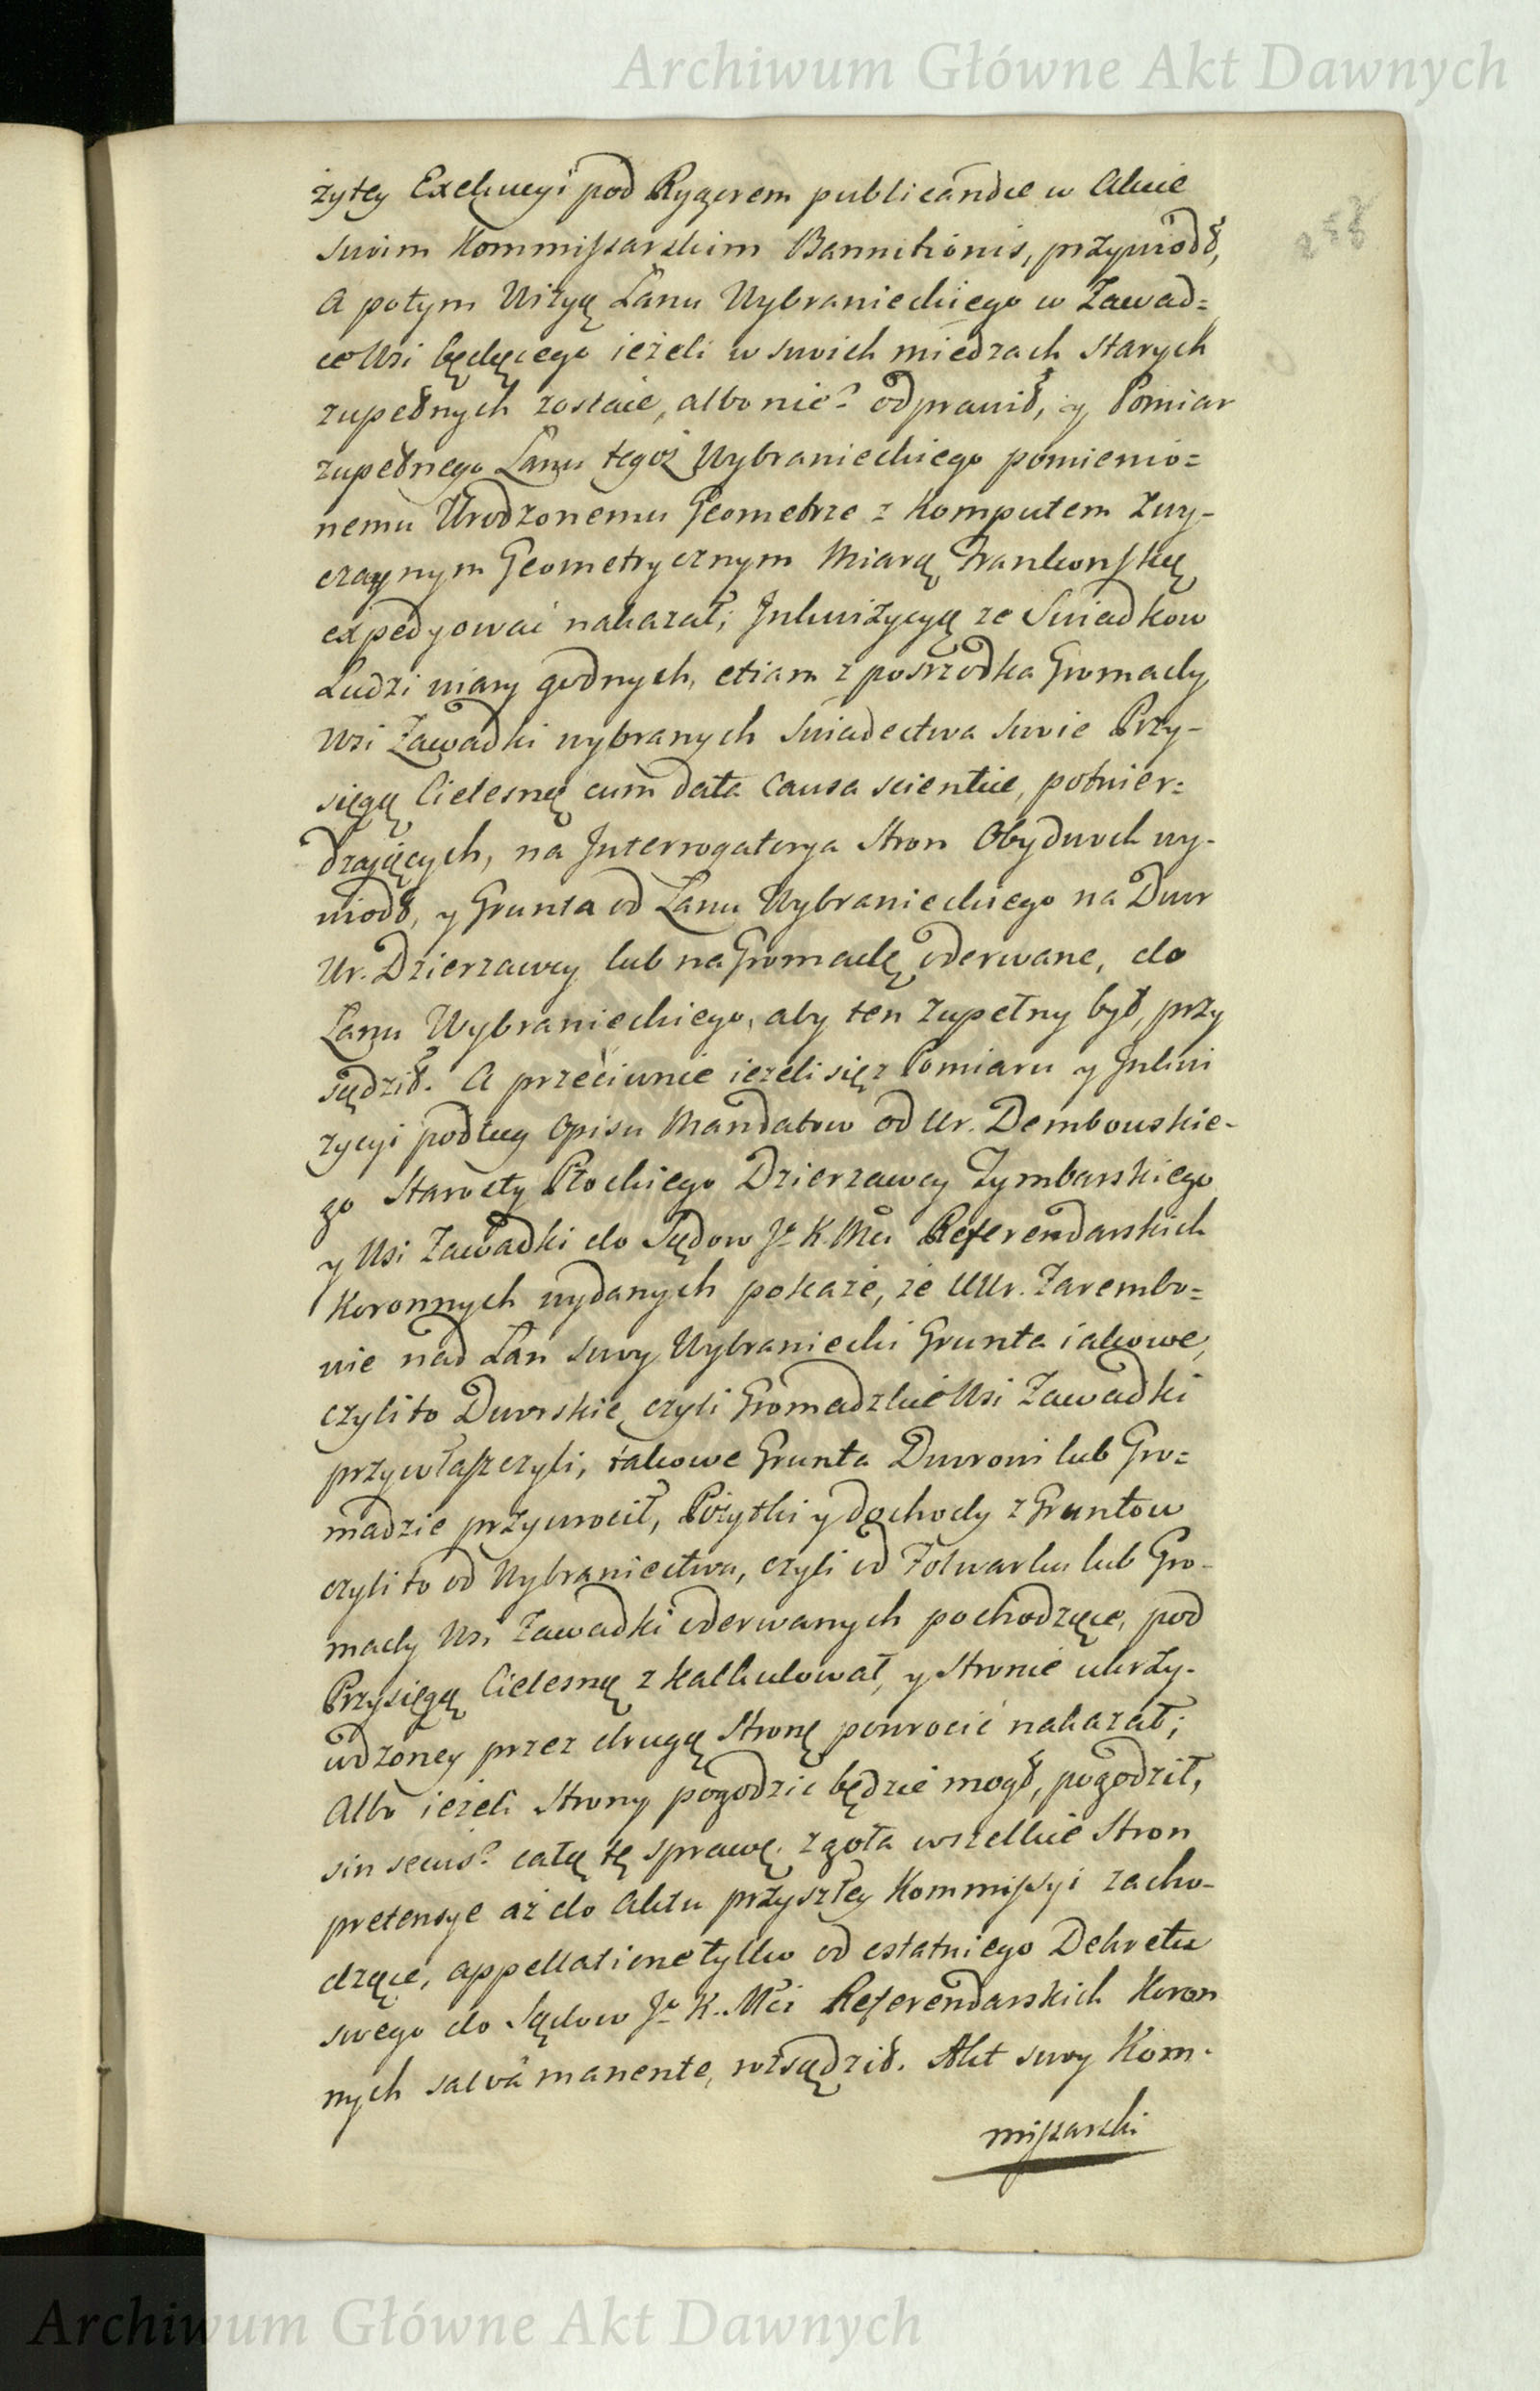 Archiwum Główne Akt Dawnych
żytey Exekucyi pod Rygorem publicandæ w Akcie
swoim Kommissarskim Bannitionis, przywiodł,
A potym Wizyą Łanu Wybranieckiego w Zawad=
ce Wsi będącego ieżeli w swoich miedzach starych
zupełnych zostaie, albo nie? odprawił, y Pomiar
zupełnego Łanu tegoż Wybranieckiego pomienio=
nemu Urodzonemu Geometrze z Komputem zwy-
czaynym Geometrycznym Miarą Frankonską
expedyować nakazał; Inkwizycyą ze Swiadkow
Ludzi wiary godnych, etiam z posrzodka Gromady
Wsi Zawadki wybranych swiadectwa swoie Przy-
sięgą Cielesną cum data causa scientiæ, potwier=
dzaiących, na Interrogatorya Stron Obydwoch wy-
wiodł, y Grunta od Łanu Wybranieckiego na Dwor
Ur. Dzierzawcy lub na Gromadę oderwane, do
Łanu Wybranieckiego, aby ten zupełny był, przy
sądził. A przeciwnie ieżeli się z Pomiaru y Inkwi
zycyi podług Opisu Mandatow od Ur. Dembowskie-
go Starosty Płockiego Dzierzawcy Tymbarskiego
y Wsi Zawadki do Sądow Jo K. Mci Referendarskich
Koronnych wydanych pokaże, że UUr. Zarembo=
wie nad Łan swoy Wybraniecki Grunta iakowe,
czyli to Dworskie, czyli Gromadzkie Wsi Zawadki
przywłaszczyli, takowe Grunta Dworowi lub Gro=
madzie przywrocił, Pożytki y dochody z Gruntow
czyli to od Wybraniectwa, czyli od Folwarku lub Gro-
mady Wsi Zawadki oderwanych pochodzące, pod
Przysięgą Cielesną zkalkulował, y Stronie ukrzy-
wdzoney przez drugą Stronę powrocić nakazał;
Albo ieżeli Strony pogodzic będzie mogł, pogodził,
sin secus? całą tę sprawę, zgoła wszelkie Stron
pretensye aż do Aktu przyszłey Kommissyi zacho-
dzące, appellatione tylko od ostatniego Dekretu
swego do Sądow Jo K. Mci Referendarskich Koron
nych salvâ manente, rozsądził. Akt swoy Kom-
missarski
Archiwum Główne Akt Dawnych